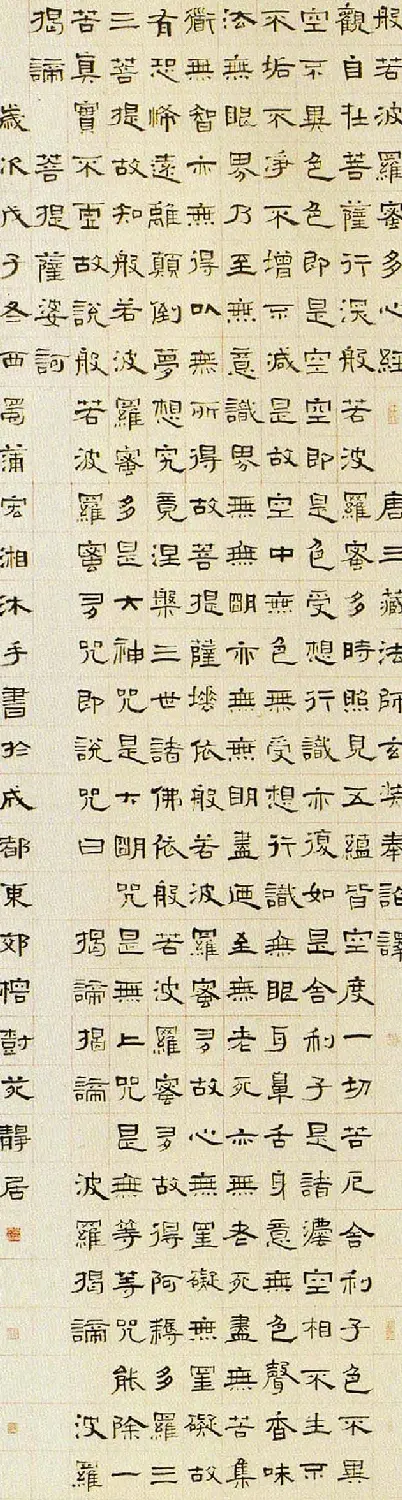 般若波羅蜜多心經 唐三藏法師玄奘奉詔譯
觀自在菩薩行深般若波羅蜜多時照見五蘊皆空度一切苦厄舍利子色不異
空不異色色即是空空即是色受想行識亦復如是舍利子是諸灋空相不生不
不垢不淨不增不減是故空中無色無受想行識無眼耳鼻舌身意無色聲香味
法無眼界乃至無意識界無無明亦無無明盡迺至無老死亦無老死盡無苦集
衟無智亦無得以無所得故菩提薩埵依般若波羅蜜多故心無罣礙無罣礙故
有恐怖遠離顛倒夢想究竟涅槃三世諸佛依般若波羅蜜多故得阿耨多羅三
三菩提故知般若波羅蜜多是大神咒是大明咒是無上咒是無等等咒能除一
苦真實不虛故說般若波羅蜜多咒即說咒曰 揭諦揭諦 波羅揭諦 波羅
揭諦 菩提薩婆訶
歲次戊子冬西蜀蒲宏湘沐手書於成都東郊榕樹苑靜居